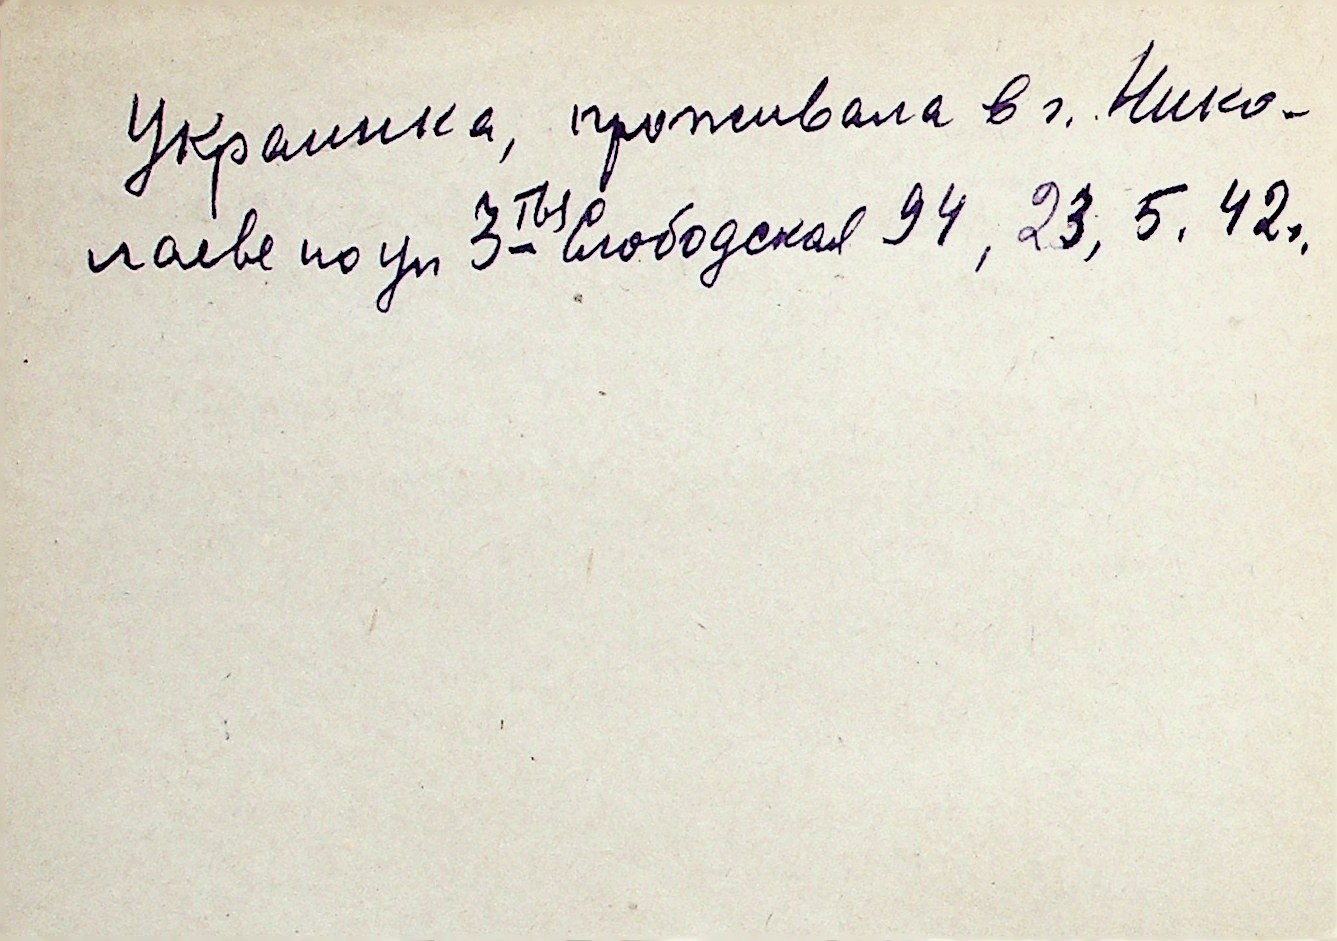 Украинка, проживала в г. Нико-
лаеве по ул 3-тья Слободская 94, 23, 5. 42г.